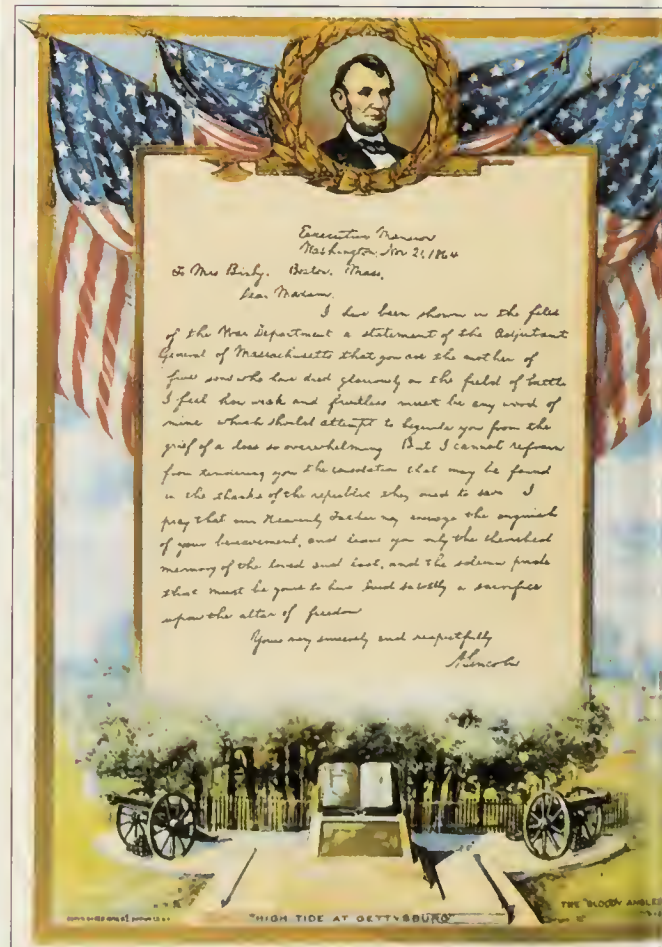 Executive Mansion
Washington, Nov 21, 1864
To Mrs Bixby, Boston, Mass,
Dear Madam,
I have been shown in the files
of the War Department a statement of the Adjutant
General of Massachusetts that you are the mother of
five sons who have died gloriously on the field of battle
I feel how weak and fruitless must be any word of
mine which should attempt to beguile you from the
grief of a loss so overwhelming But I cannot refrain
from tendering you the consolation that may be found
in the thanks of the republic they died to save I
pray that our Heavenly Father may assuage the anguish
of your bereavement, and leave you only the cherished
memory of the loved and lost, and the solemn pride
that must be yours to have laid so costly a sacrifice
upon the altar of freedom
Yours very sincerely and respectfully
A Lincoln
"HIGH TIDE AT GETTYSBURG"
THE "BLOODY ANGLE